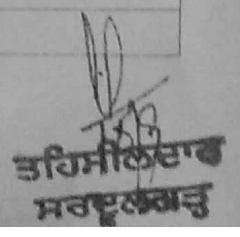 ਤਹਿਸੀਲਦਾਰ
ਸਰਦੂਲਗੜ੍ਹ